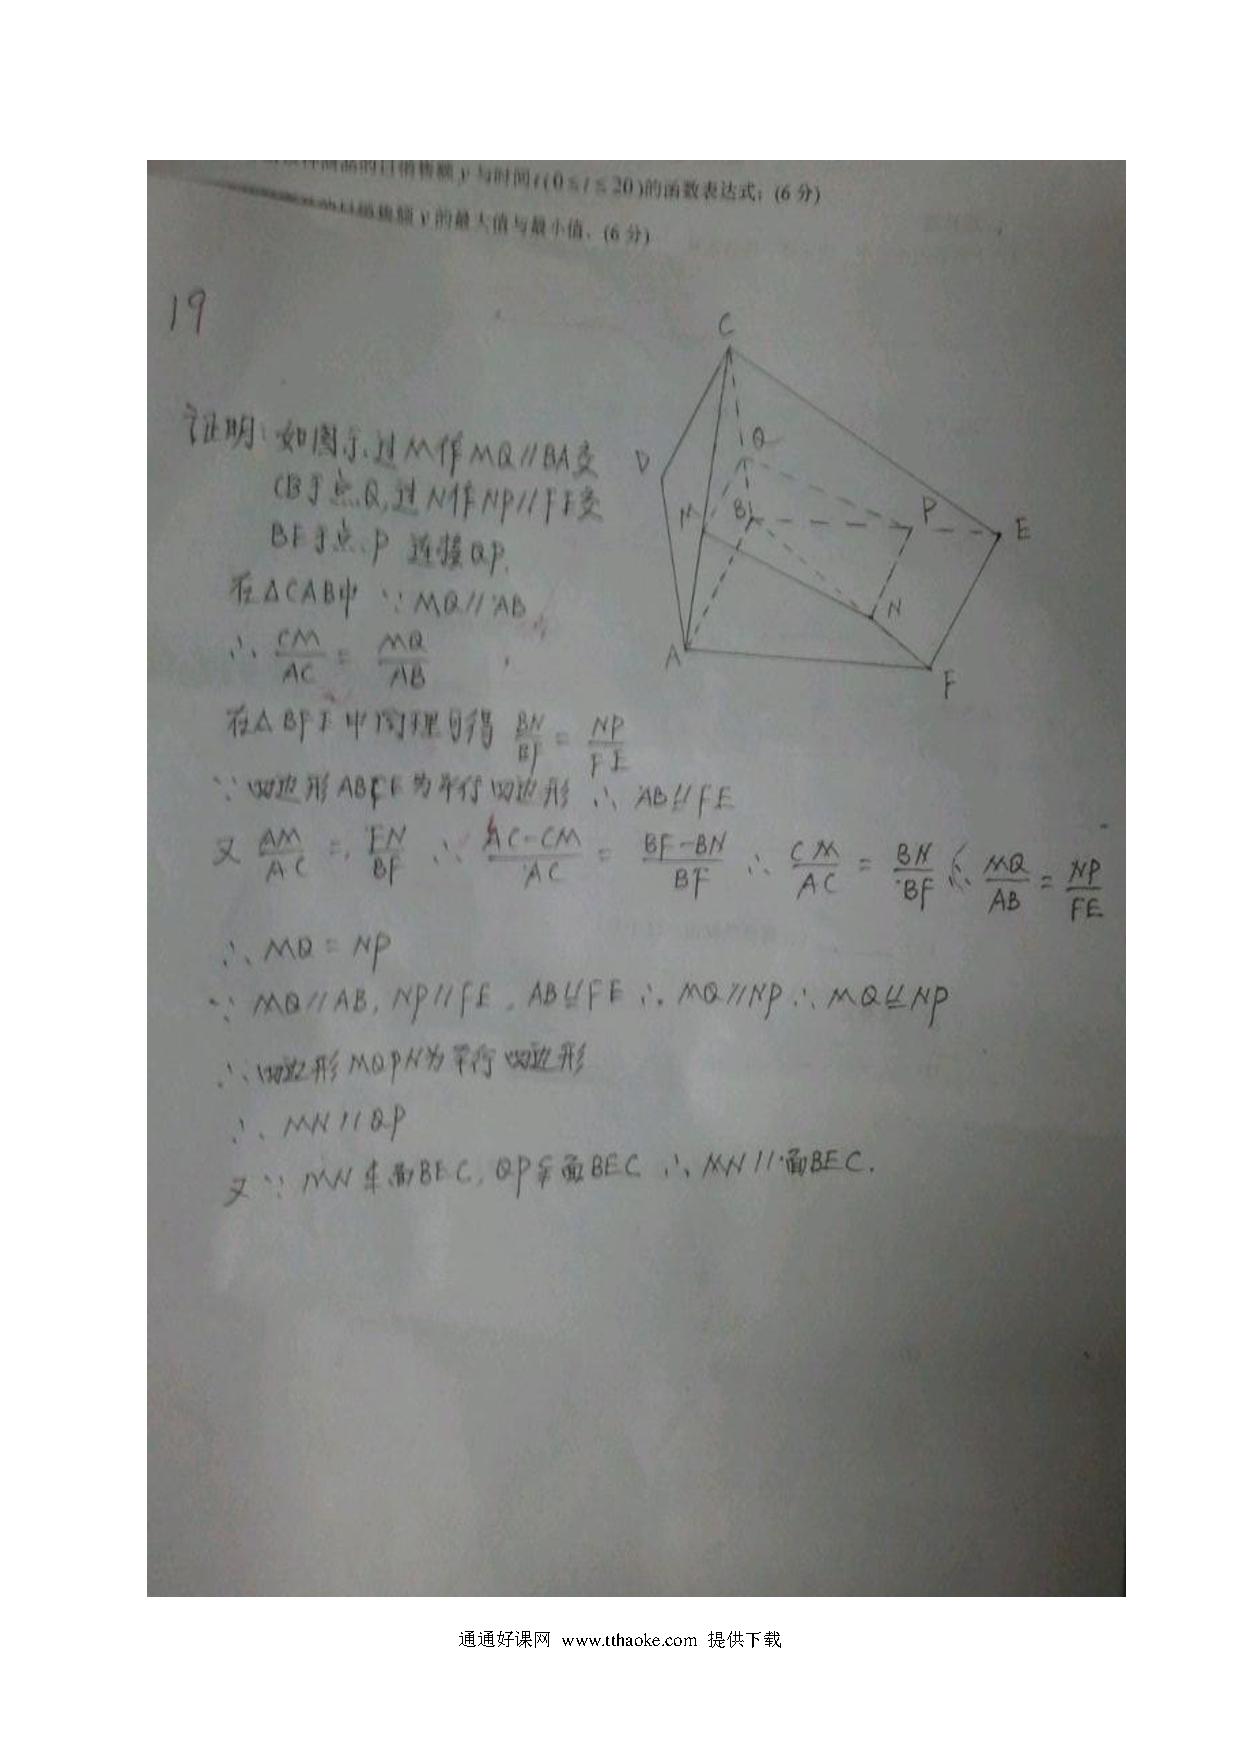 品的日销售额y与时间t(0≤t≤20)的函数表达式;(6分)
日销售额y的最大值与最小值.(6分)
19
C
Q
D
M
B
P
E
N
A
F
证明:如图示,过M作MQ//BA交
CB于点Q,过N作NP//FE交
BE于点P 连接QP.
在△CAB中 ∵MQ//AB
∴ CM/AC = MQ/AB
在△BFE中同理可得 BN/BF = NP/FE
∵四边形ABFE为平行四边形 ∴ AB⫽FE
又 AM/AC = FN/BF ∴ AC-CM/AC = BF-BN/BF ∴ CM/AC = BN/BF ∴ MQ/AB = NP/FE
∴ MQ = NP
∵ MQ//AB, NP//FE, AB⫽FE ∴ MQ//NP ∴ MQ⫽NP
∴四边形MQPN为平行四边形
∴ MN//QP
又∵ MN⊄面BEC, QP⊊面BEC ∴ MN//面BEC.
通通好课网 www.tthaoke.com 提供下载